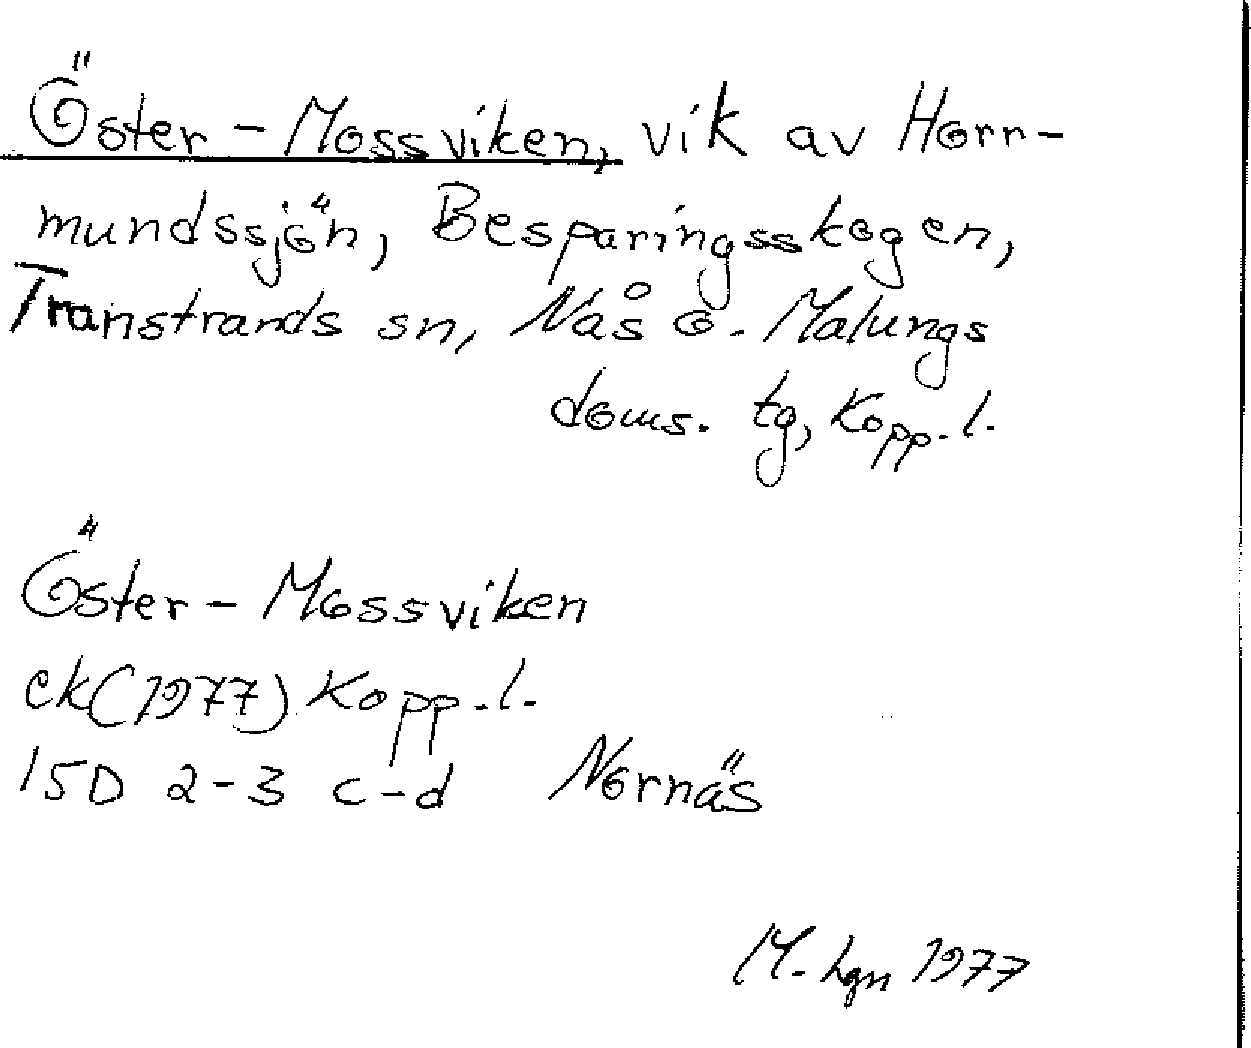 Öster - Mossviken, vik av Horr-
mundssjön, Besparingsskogen,
Transtrands sn, Nås o. Malungs
doms. tg, Kopp. l.
Öster - Mossviken
ek (1977) Kopp. l.
15D 2-3 c-d Nornäs
M. hgn 1977